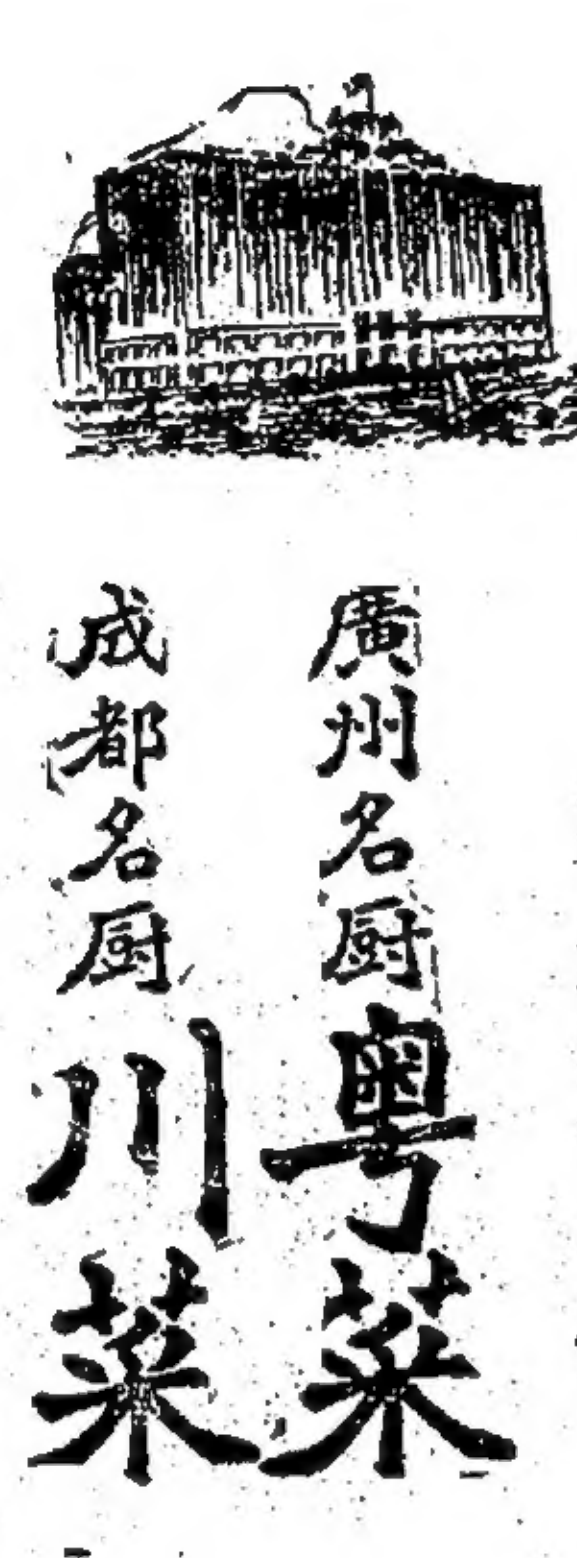 廣州名厨粤菜
成都名厨川菜